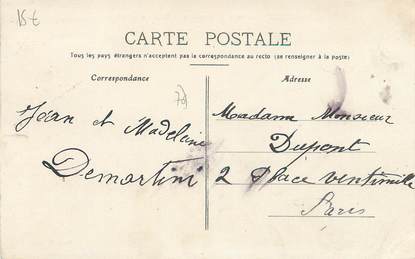 15€
CARTE POSTALE
Tous les pays étrangers n'acceptent pas la correspondance au recto (se renseigner à la poste)
Correspondance
Adresse
70f
Jean et Madeleine
Demartini
Madame Monsieur
Dupont
2 Place Ventimille
Paris